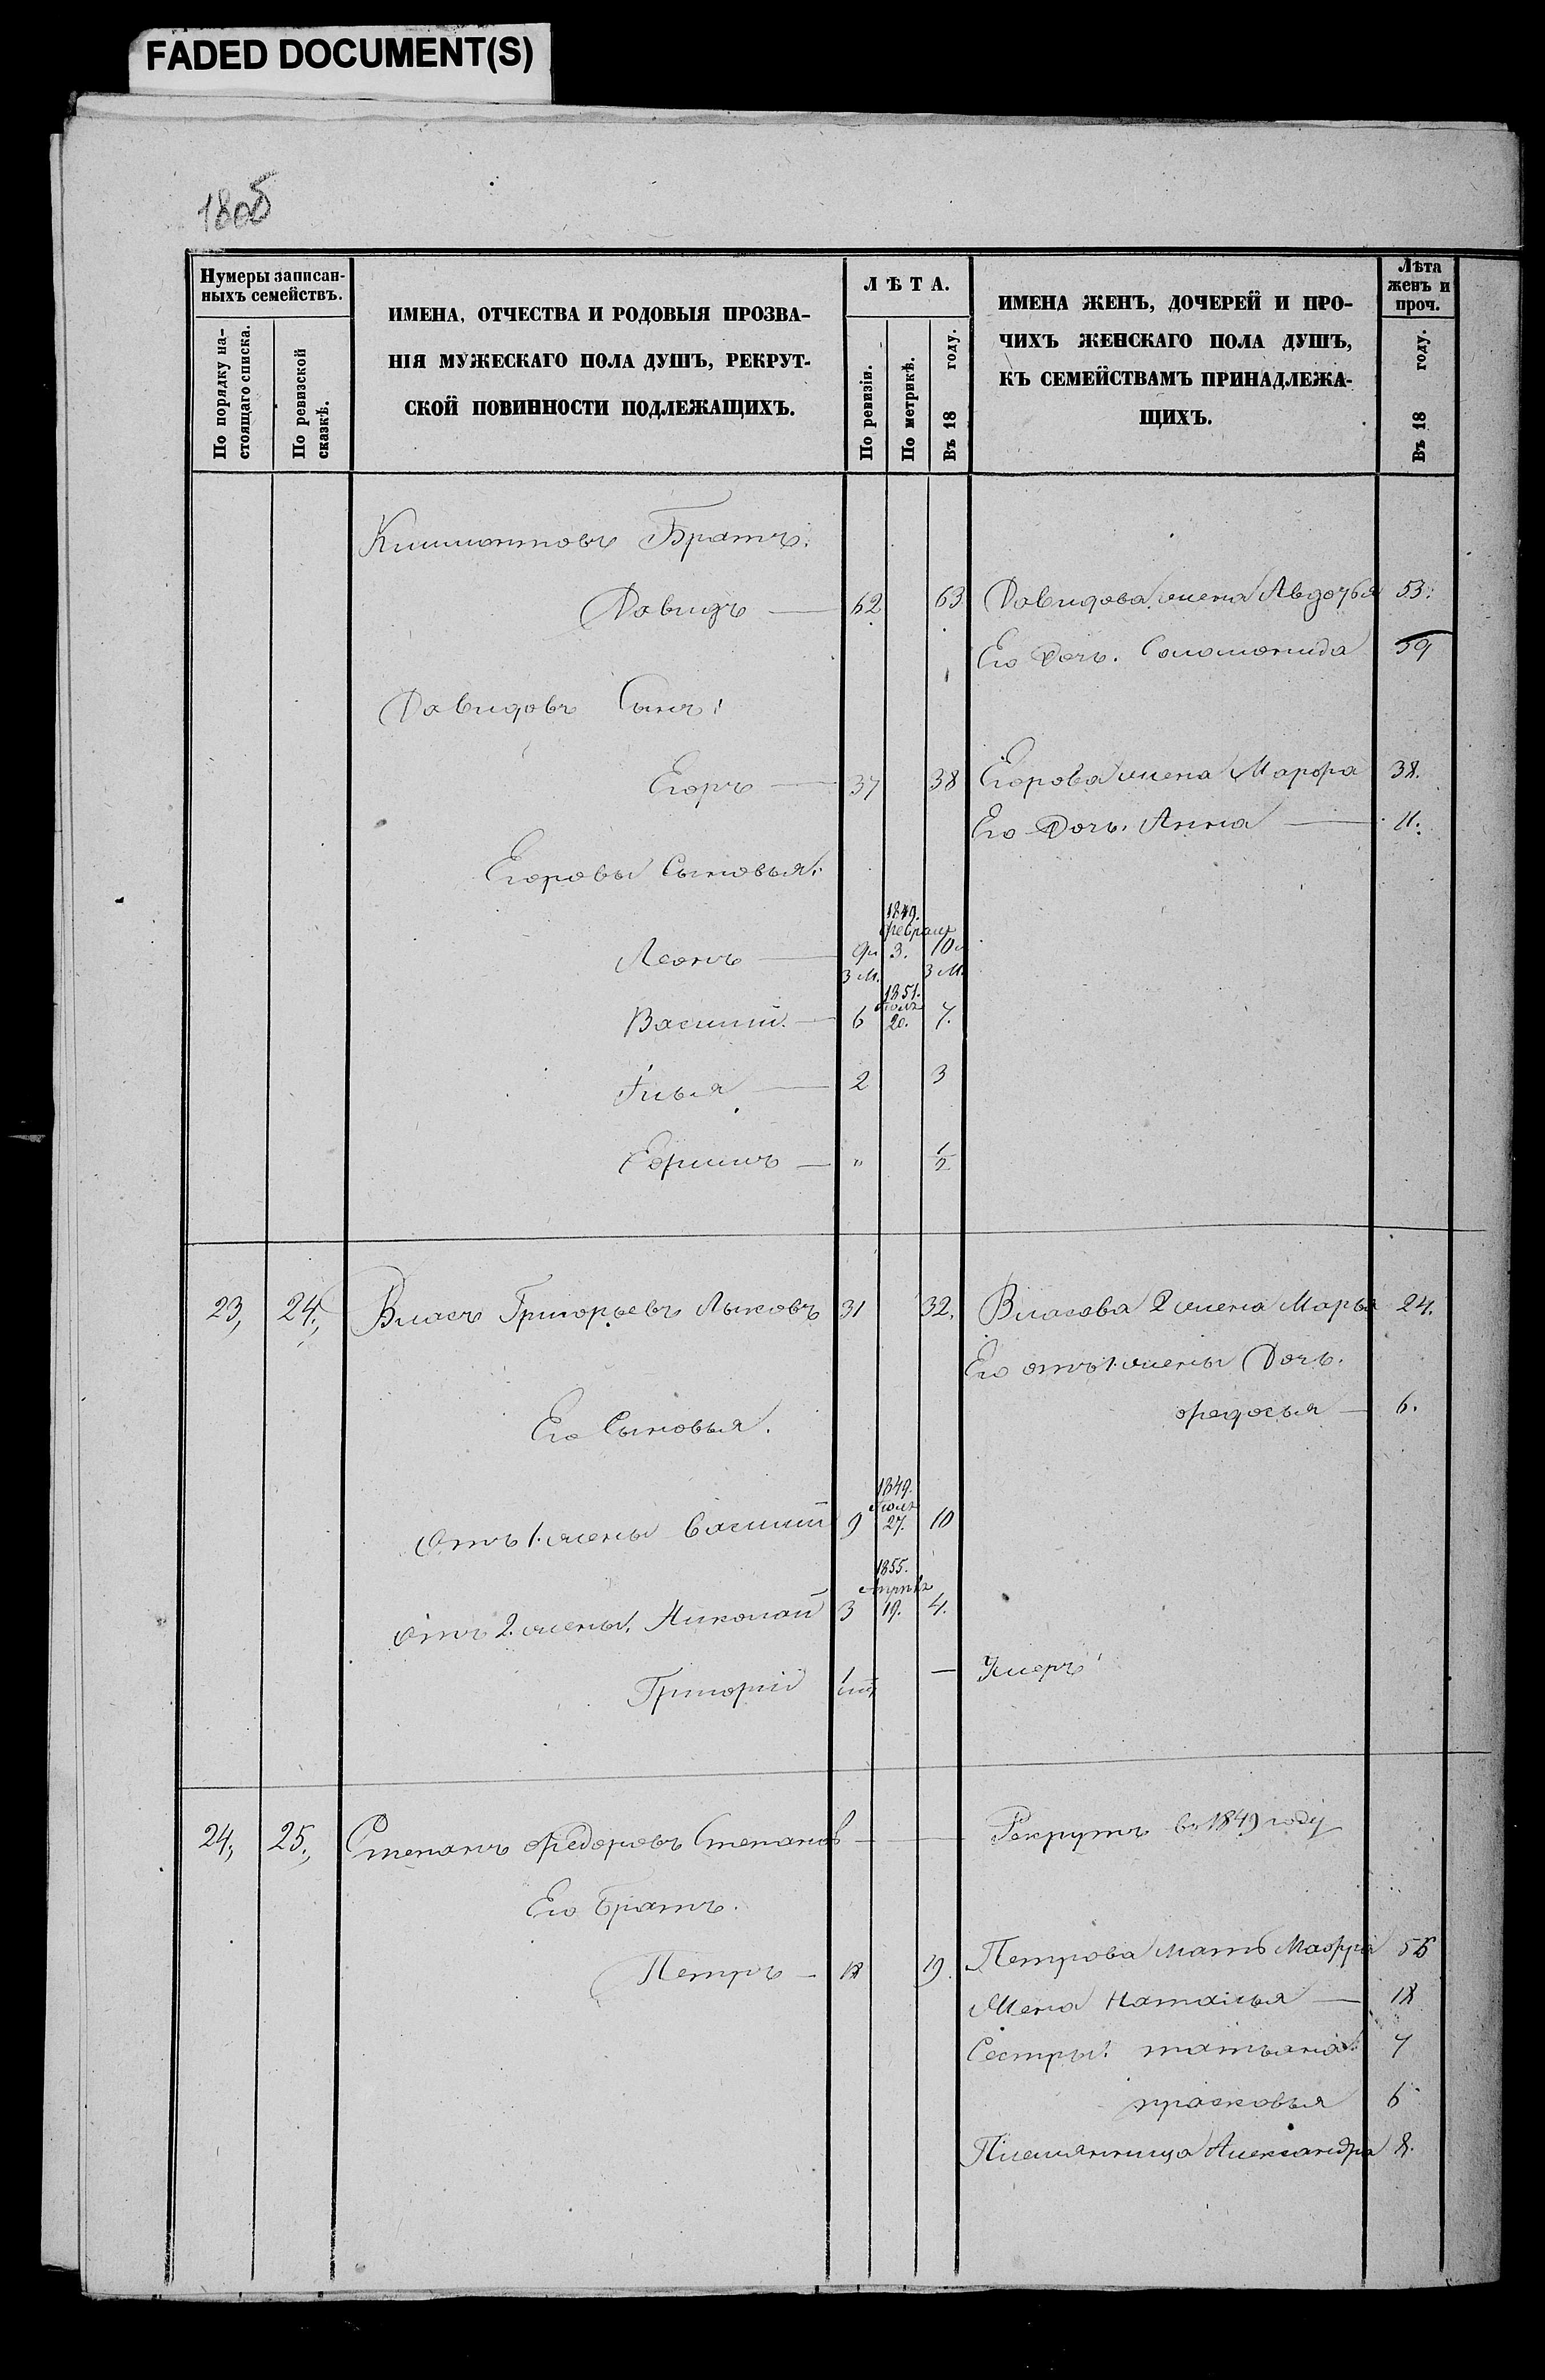 FADED DOCUMENT(S)
1805
Нумеры записан-
ныхъ семействъ.
По порядку на-
стоящаго списка.
По ревизской
сказкѣ.
ИМЕНА, ОТЧЕСТВА И РОДОВЫЯ ПРОЗВА-
НІЯ МУЖЕСКАГО ПОЛА ДУШЪ, РЕКРУТ-
СКОЙ ПОВИННОСТИ ПОДЛЕЖАЩИХЪ.
ЛѢТА.
По ревизіи.
По метрикѣ.
Въ 18 году.
ИМЕНА ЖЕНЪ, ДОЧЕРЕЙ И ПРО-
ЧИХЪ ЖЕНСКАГО ПОЛА ДУШЪ,
КЪ СЕМЕЙСТВАМЪ ПРИНАДЛЕЖА-
ЩИХЪ.
Лѣта
женъ и
проч.
Въ 18 году.
Братъ.
Давидъ — 62 63 Давидова жена Авдотья 53.
Его Дочь. Соломонида 39
Давидовъ Сынъ:
Егоръ — 37 38 Егорова жена Марфа 38.
Его Дочь. Анна — 11.
Егоровы Сыновья:
1849.
февраля
Леонъ — 9 и 3. 10 и
3 м. 3 м.
1851.
Василий. — 6 20. 7.
Илья — 2 3
Ефимъ — " 1/2
23, 24., Власъ Григорьевъ Лыковъ 31 32. Власова 2 жена Марья 24.
Его отъ 1. жены Дочь.
федосья — 6.
Его Сыновья.
1849.
отъ 1. жены Василий 9 27. 10
1855.
Апрѣля
отъ 2. жены. Николай 3 19. 4.
Григорій — Умеръ
24, 25., Степанъ Федоровъ Степановъ — Рекрутъ въ 1849 году
Его братъ.
Петръ — 18 19. Петрова мать Мавра 55
Жена Наталья — 18
Сестры: татьяна. 7
прасковья 6
Племянница Александра 8.